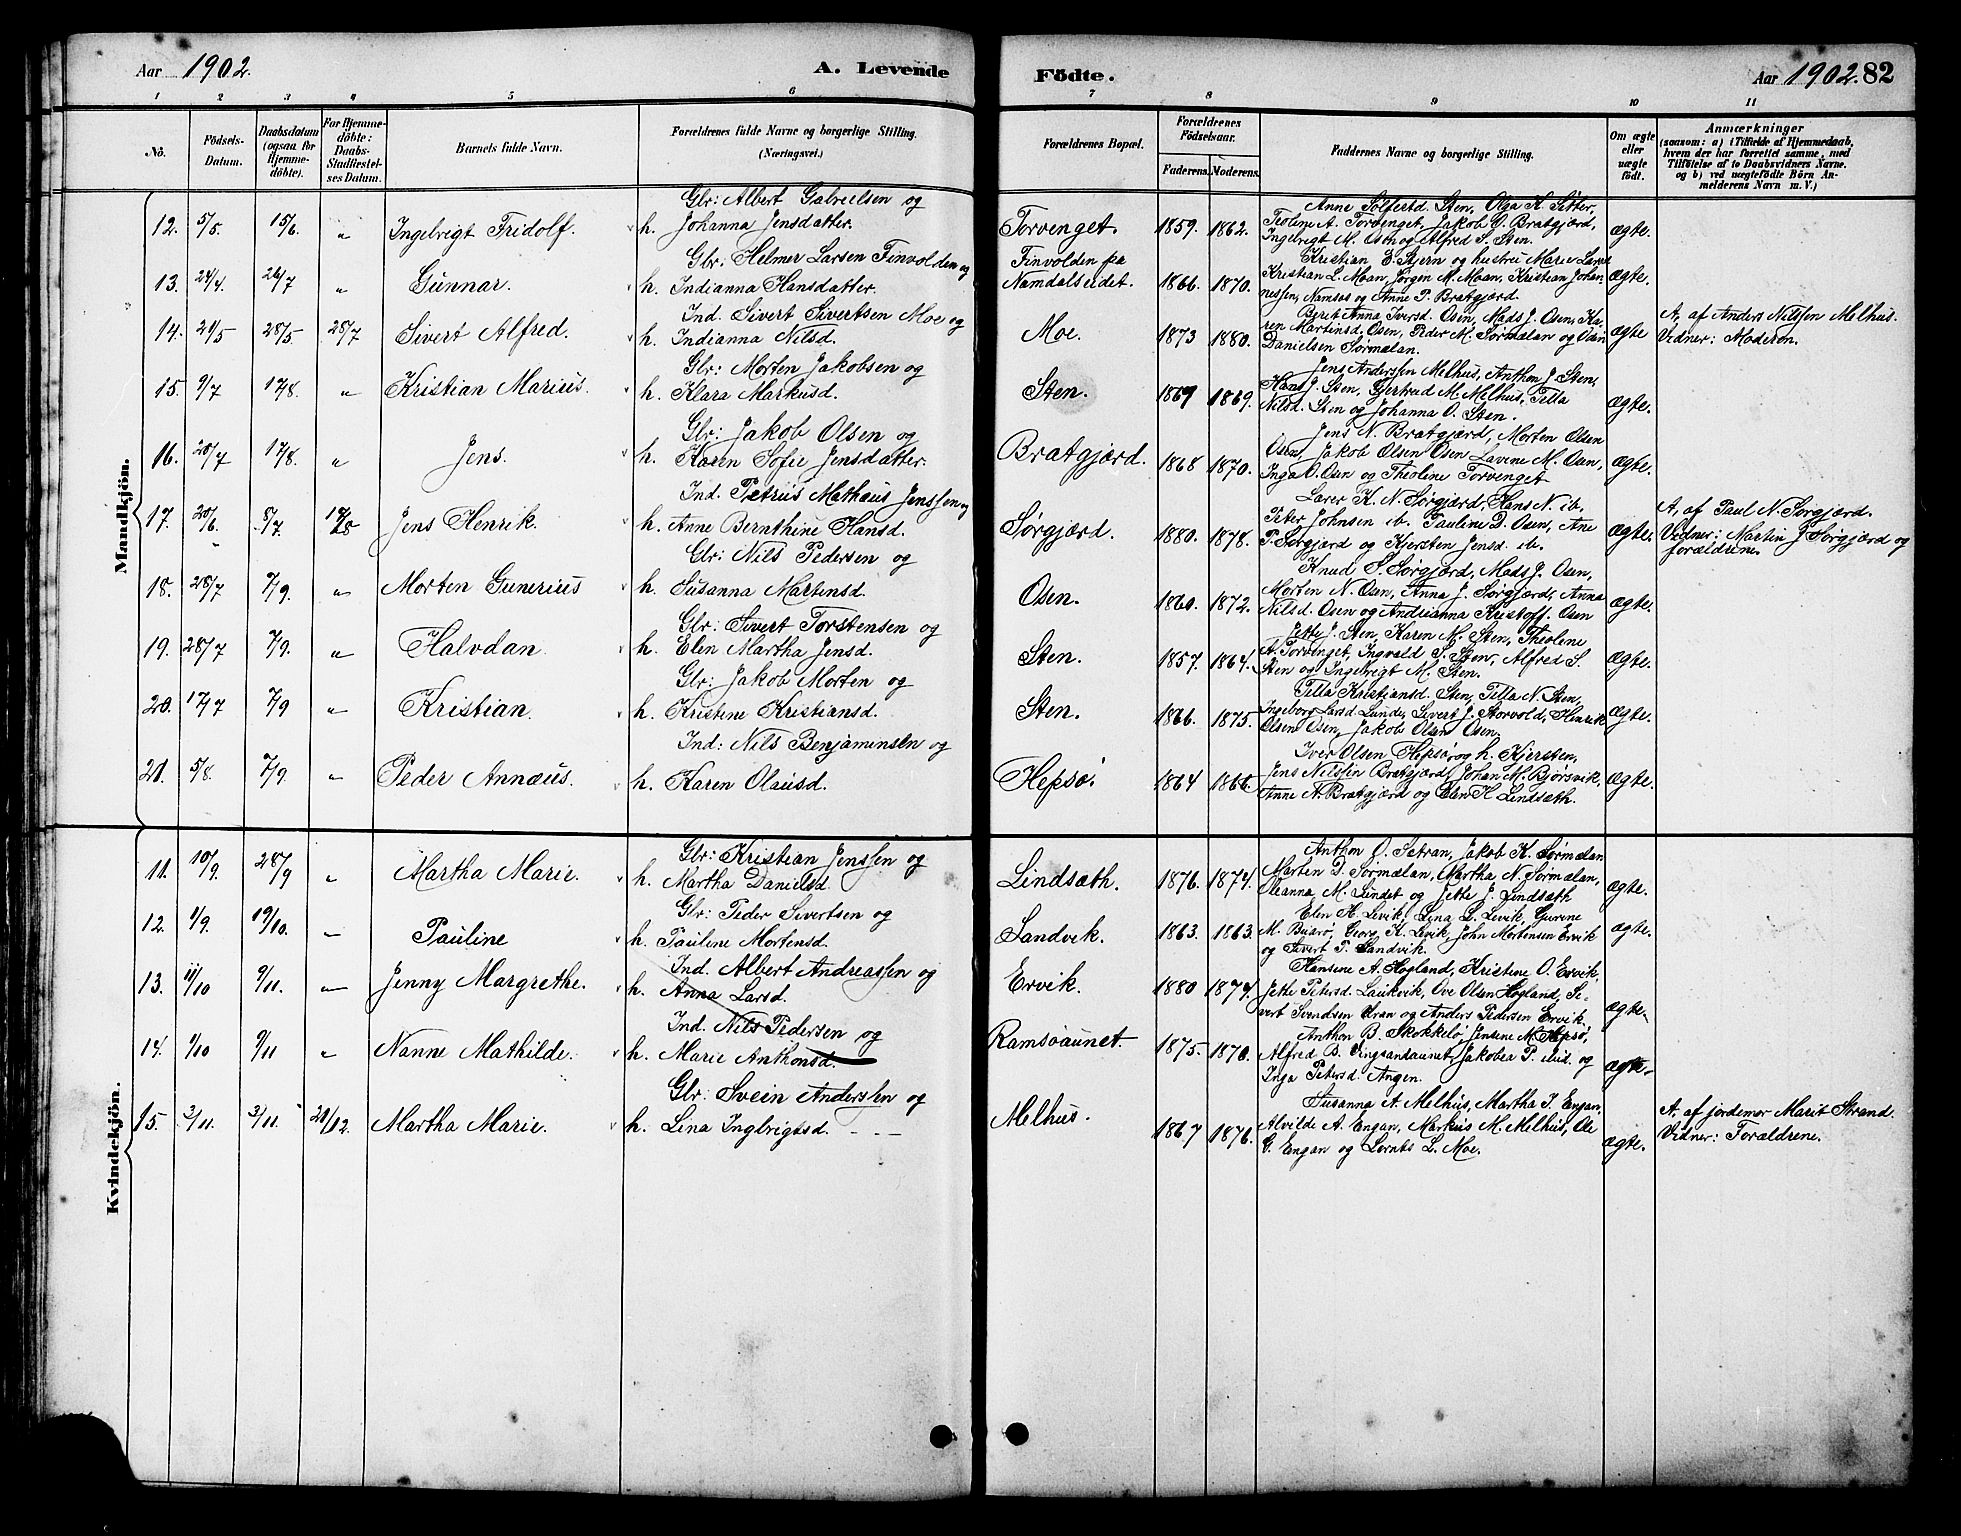 Aar 1902. A. Levende Födte. Aar 1902. 82
1 2 3 4 5 6 7 8 9 10 11
No. Födsels-Datum. Daabsdatum (ogsaa for Hjemmedöbte). For Hjemmedöbte: Daabs-Stadfæstelses Datum. Barnets fulde Navn. Forældrenes fulde Navne og borgerlige Stilling. (Næringsvei.) Forældrenes Bopæl. Forældrenes Födselsaar. Faderens. Moderens. Faddernes Navne og borgerlige Stilling. Om ægte eller uægte födt. Anmærkninger
(saasom: a) i Tilfælde af Hjemmedaab,
hvem der har forrettet samme, med
Tilföielse af to Daabsvidners Navne.
og b) ved uægtefödte Börn An-
melderens Navn m. V.)
Mandkjön.
Glr: Albert Gabrielsen og
12. 5/5. 15/6. " Ingebrigt Fridolf. h. Johanna Jensdatter. Torvenget. 1859. 1862. ægte.
Anne Sølfertd. Sten, Olga K. Sætter,
Teoline A. Torvenget, Jakob O. Bratgjærd,
Ingebrigt M. Osen og Alfred S. Sten.
Gbr. Helmer Larsen Finvolden og
13. 24/4. 26/7 " Gunnar. h. Indianna Hansdatter. Finvolden på Namdalseidet. 1866. 1870. ægte.
Kristian E. Stjern og hustru Marie Larsd
Kristian L. Maan, Jørgen M. Maan, Kristian Johan-
nessen, Namsos og Anne P. Bratgjærd.
Ind. Sivert Sivertsen Moe og
14. 21/5 28/5 28/7 Sivert Alfred. h. Indianna Nilsd. Moe. 1873 1880. ægte
Berit Anna Iversd. Osen, Mads J. Osen, Ka-
ren Martinsd. Osen, Peder M. Sørmælan og Osen
Danielsen Sørmælan.
A, af Anders Nilssen Melhus.
Vidner: Moderen.
Glr: Morten Jakobsen og
15. 9/7 17/8. " Kristian Marius. h. Klara Markusd. Sten. 1869 1869. ægte.
Jens Anderssen Melhus, Anthon J. Sten,
Hans J. Sten, Gjertrud M. Melhus, Tella
Nilsd. Sten og Johanna O. Sten.
Glr: Jakob Olsen og
16. 20/7 17/8. " Jens. h. Karen Sofie Jensdatter. Bratgjærd. 1868 1870. ægte.
Jens N. Bratgjærd, Morten Olsen
Osen, Jakob Olsen Osen, Lavine M. Osen,
Inga O. Osen og Theoline Torvenget
Ind. Petrus Mathæus Jenssen og
17. 20/6. 8/7 17/8 Jens Henrik. h. Anne Bernthine Hansd. Sørgjærd. 1880. 1878. ægte.
Lærer K. N. Sørgjærd, Hans N. ib.
Peter Johnsen ib. Pauline D. Osen, Ane
P. Sørgjærd og Kjersten Jensd. ib.
A, af Paul N. Sørgjærd.
Vidner: Martin J. Sørgjærd og
forældrene.
Glr: Nils Pedersen og
18. 28/7 7/9. " Morten Gunerius h. Susanna Martensd. Osen. 1860. 1872. ægte.
Knud S. Sørgjærd, Mads J. Osen,
Morten N. Osen, Anna J. Sørgjærd, Anna
Nilsd. Osen og Andrianna Kristoff. Osen
Glr. Sivert Torstensen og
19. 28/7 7/9. " Halvdan. h. Elen Martha Jensd. Sten. 1857. 1864. ægte.
Jette J. Sten, Karen M. Sten, Theoline
A. Torvenget, Ingvald S. Sten, Alfred S.
Sten og Ingebrigt M. Sten.
Glr: Jakob Morten og
20. 17/7 7/9 " Kristian. h. Kristine Kristiansd. Sten. 1866. 1875. ægte.
Tella Kristiansd. Sten, Tella N. Sten,
Ingeborg Larsd. Lunde, Sivert J. Storvold, Henrik
Olsen Osen, Jakob Olsen Osen.
Ind: Nils Benjaminsen og
21. 5/8. 7/9. " Peder Annæus. h. Karen Olausd. Hepsø. 1864 1866. ægte.
Iver Olsen Hepsø og h. Kjersten,
Jens Nilssen Bratgjærd, Johan M. Bjørsvik,
Anne N. Bratgjærd og Elen H. Lindsæth.
Kvindekjön.
Glr: Kristian Jenssen og
11. 10/9. 28/9 " Martha Marie. h. Martha Danielsd. Lindsæth. 1876. 1874. ægte.
Anthon O. Sætran, Jakob K. Sørmælan
Marten D. Sørmælan, Martha N. Sørmælan,
Oleanna M. Lindset og Jette J. Lindsæth
Glr: Peder Sivertsen og
12. 1/9. 19/10. " Pauline h. Pauline Mortensd. Sandvik. 1863. 1863. ægte.
Elen H. Levik, Lena L. Levik, Gurine
M. Buarø, Georg K. Levik, John Mortensen Ervik
og Sivert P. Sandvik.
Ind. Albert Andreassen og
13. 11/10 9/11. " Jenny Margrethe. h. Anna Larsd. Ervik. 1880 1874. ægte.
Hansine A. Hogland, Kristine O. Ervik,
Jette Petersd. Laukvik, Ove Olsen Hogland, Si-
vert Svendsen Aran og Anders Pedersen Ervik,
Ind. Nils Pedersen og
14. 1/10 9/11 " Nanne Mathilde. h. Marie Anthonsd. Ramsøaunet. 1875. 1870. ægte.
Anthon B. Skokkelø, Jensine M. Hepsø,
Alfred B. Vingsandaunet, Jakobea P. ibid. og
Inga Petersd. Angen.
Glr: Svein Anderssen og
15. 3/11. 3/11. 21/12. Martha Marie. h. Lina Ingbrigtsd. - - - Melhus. 1867 1876. ægte.
Susanna A. Melhus, Martha I. Engan,
Alvilde A. Engan, Markus M. Melhus, Ole
G. Engan og Lornts L. Moe.
A. af jordemor Marit Strand.
Vidner: Forældrene.